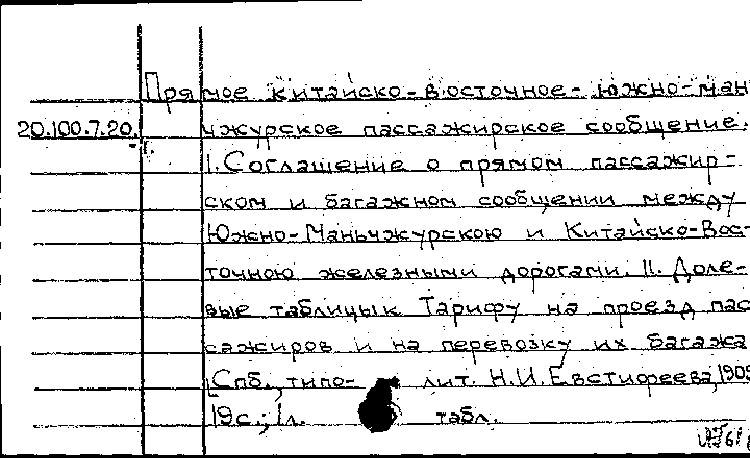 Прямое Китайско-Восточное-Южно-Мань
20.100.7.20. чжурское пассажирское сообщение.
I. Соглашение о прямом пассажир-
ском и багажном сообщении между
Южно-Маньчжурскою и Китайско-Вос-
точною железными дорогами. II. Доле-
вые таблицы к Тарифу на проезд пас
сажиров и на перевозку их багажа
[Спб., типо-лит. Н.И. Евстифеева, 1909
19 с.; 1 л. табл.